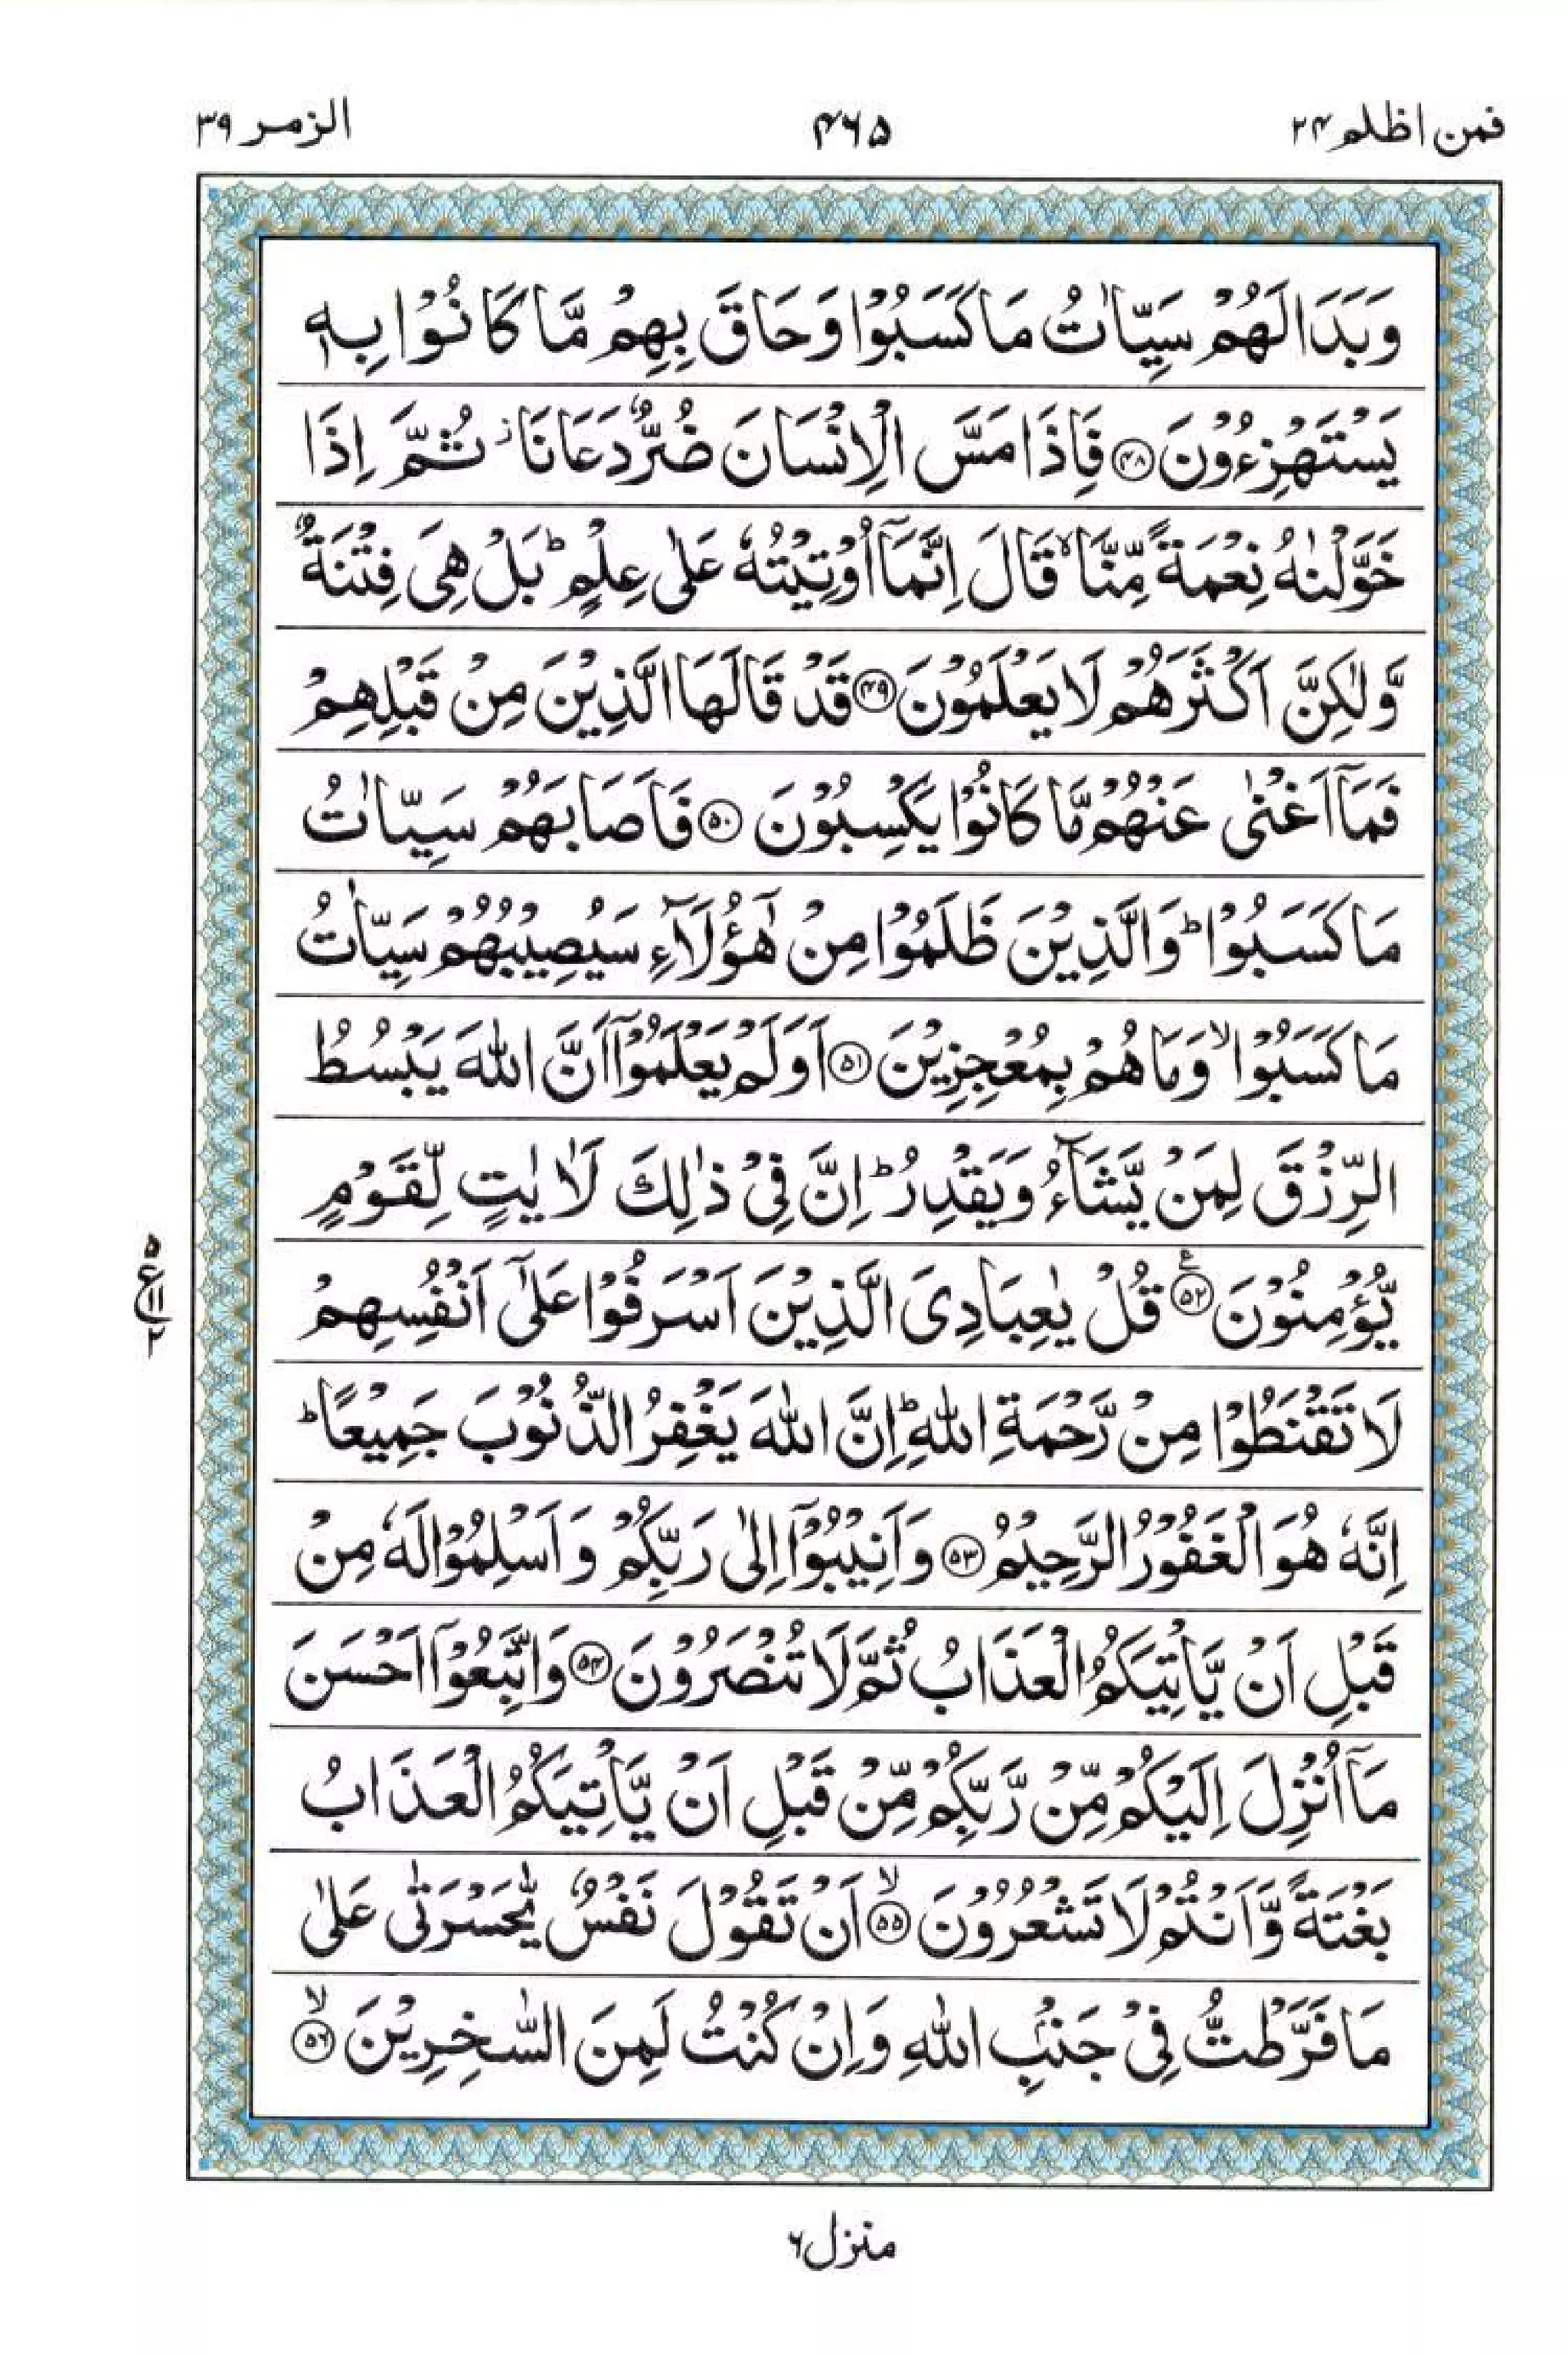 فمن اظلم ۲۴
۴۶۵
الزمر ۳۹
وَبَدَا لَهُمْ سَيِّاٰتُ مَا كَسَبُوْا وَحَاقَ بِهِمْ مَّا كَانُوْا بِهٖ
يَسْتَهْزِءُوْنَ ﴿۴۸﴾ فَاِذَا مَسَّ الْاِنْسَانَ ضُرٌّ دَعَانَا ز ثُمَّ اِذَا
خَوَّلْنٰهُ نِعْمَةً مِّنَّا ۙ قَالَ اِنَّمَاۤ اُوْتِيْتُهٗ عَلٰى عِلْمٍ ؕ بَلْ هِىَ فِتْنَةٌ
وَّلٰكِنَّ اَكْثَرَهُمْ لَا يَعْلَمُوْنَ ﴿۴۹﴾ قَدْ قَالَهَا الَّذِيْنَ مِنْ قَبْلِهِمْ
فَمَاۤ اَغْنٰى عَنْهُمْ مَّا كَانُوْا يَكْسِبُوْنَ ﴿۵۰﴾ فَاَصَابَهُمْ سَيِّاٰتُ
مَا كَسَبُوْا ؕ وَالَّذِيْنَ ظَلَمُوْا مِنْ هٰۤؤُلَآءِ سَيُصِيْبُهُمْ سَيِّاٰتُ
مَا كَسَبُوْا ۙ وَمَا هُمْ بِمُعْجِزِيْنَ ﴿۵۱﴾ اَوَلَمْ يَعْلَمُوْۤا اَنَّ اللّٰهَ يَبْسُطُ
الرِّزْقَ لِمَنْ يَّشَآءُ وَيَقْدِرُ ؕ اِنَّ فِىْ ذٰلِكَ لَاٰيٰتٍ لِّقَوْمٍ
يُّؤْمِنُوْنَ ﴿۵۲﴾ ع قُلْ يٰعِبَادِىَ الَّذِيْنَ اَسْرَفُوْا عَلٰٓى اَنْفُسِهِمْ
۵ ع ۱۱ ۲
لَا تَقْنَطُوْا مِنْ رَّحْمَةِ اللّٰهِ ؕ اِنَّ اللّٰهَ يَغْفِرُ الذُّنُوْبَ جَمِيْعًا ؕ
اِنَّهٗ هُوَ الْغَفُوْرُ الرَّحِيْمُ ﴿۵۳﴾ وَاَنِيْبُوْۤا اِلٰى رَبِّكُمْ وَاَسْلِمُوْا لَهٗ مِنْ
قَبْلِ اَنْ يَّاْتِيَكُمُ الْعَذَابُ ثُمَّ لَا تُنْصَرُوْنَ ﴿۵۴﴾ وَاتَّبِعُوْۤا اَحْسَنَ
مَاۤ اُنْزِلَ اِلَيْكُمْ مِّنْ رَّبِّكُمْ مِّنْ قَبْلِ اَنْ يَّاْتِيَكُمُ الْعَذَابُ
بَغْتَةً وَّاَنْتُمْ لَا تَشْعُرُوْنَ ﴿۵۵﴾ ۙ اَنْ تَقُوْلَ نَفْسٌ يّٰحَسْرَتٰى عَلٰى
مَا فَرَّطْتُّ فِىْ جَنْۢبِ اللّٰهِ وَاِنْ كُنْتُ لَمِنَ السّٰخِرِيْنَ ﴿۵۶﴾ ۙ
منزل ۶